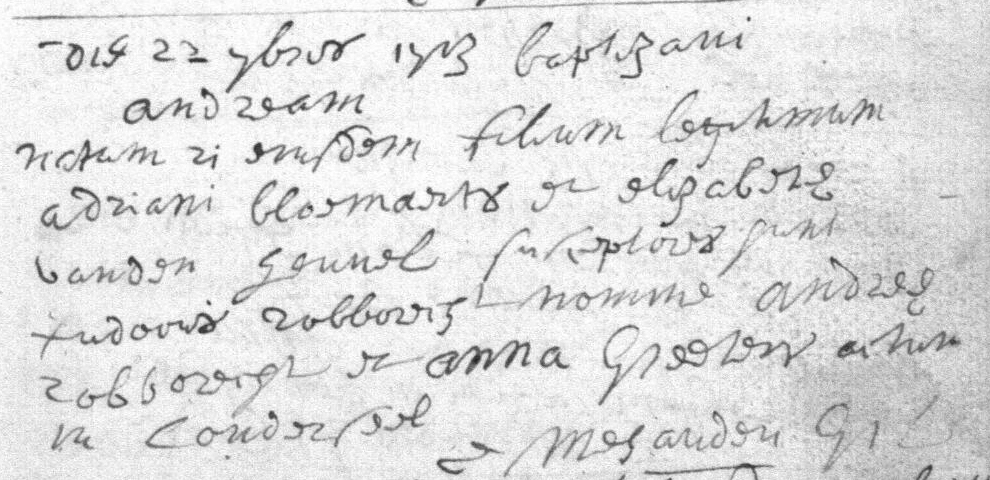 Die 22 7bris 1713 baptizavi
andream
natum 21 eiusdem filium legitimum
adriani bloemaerts et elizabetæ
vanden heuvel susceptores sunt
ludovicus robborecht nomine andreæ
robborecht et anna Greeters actum
in Londerseel